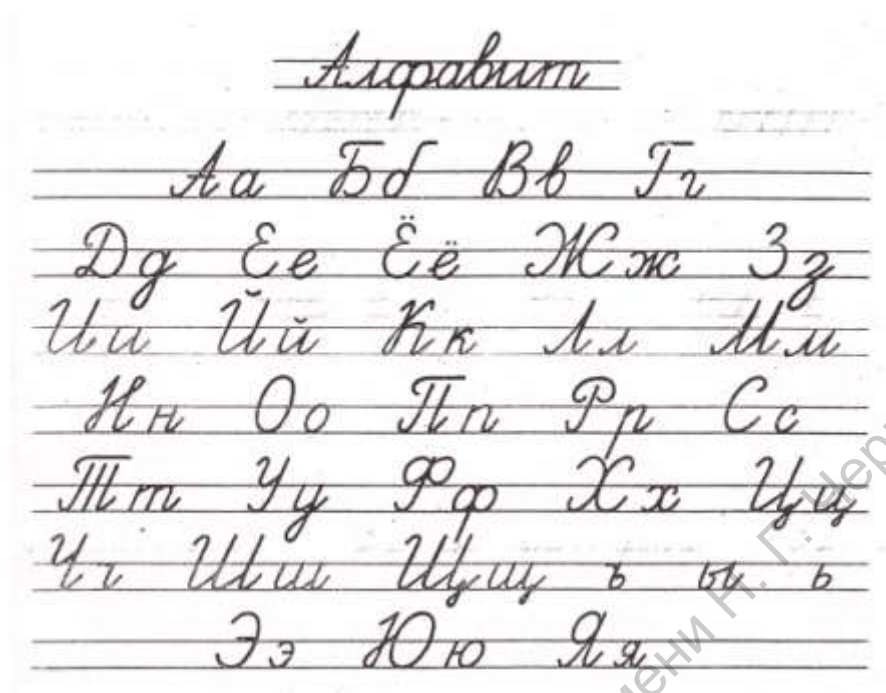 Алфавит
Аа Бб Вв Гг
Дд Ее Ёё Жж Зз
Ии Йй Кк Лл Мм
Нн Оо Пп Рр Сс
Тт Уу Фф Хх Цц
Чч Шш Щщ ъ ы ь
Ээ Юю Яя
Н. Г.